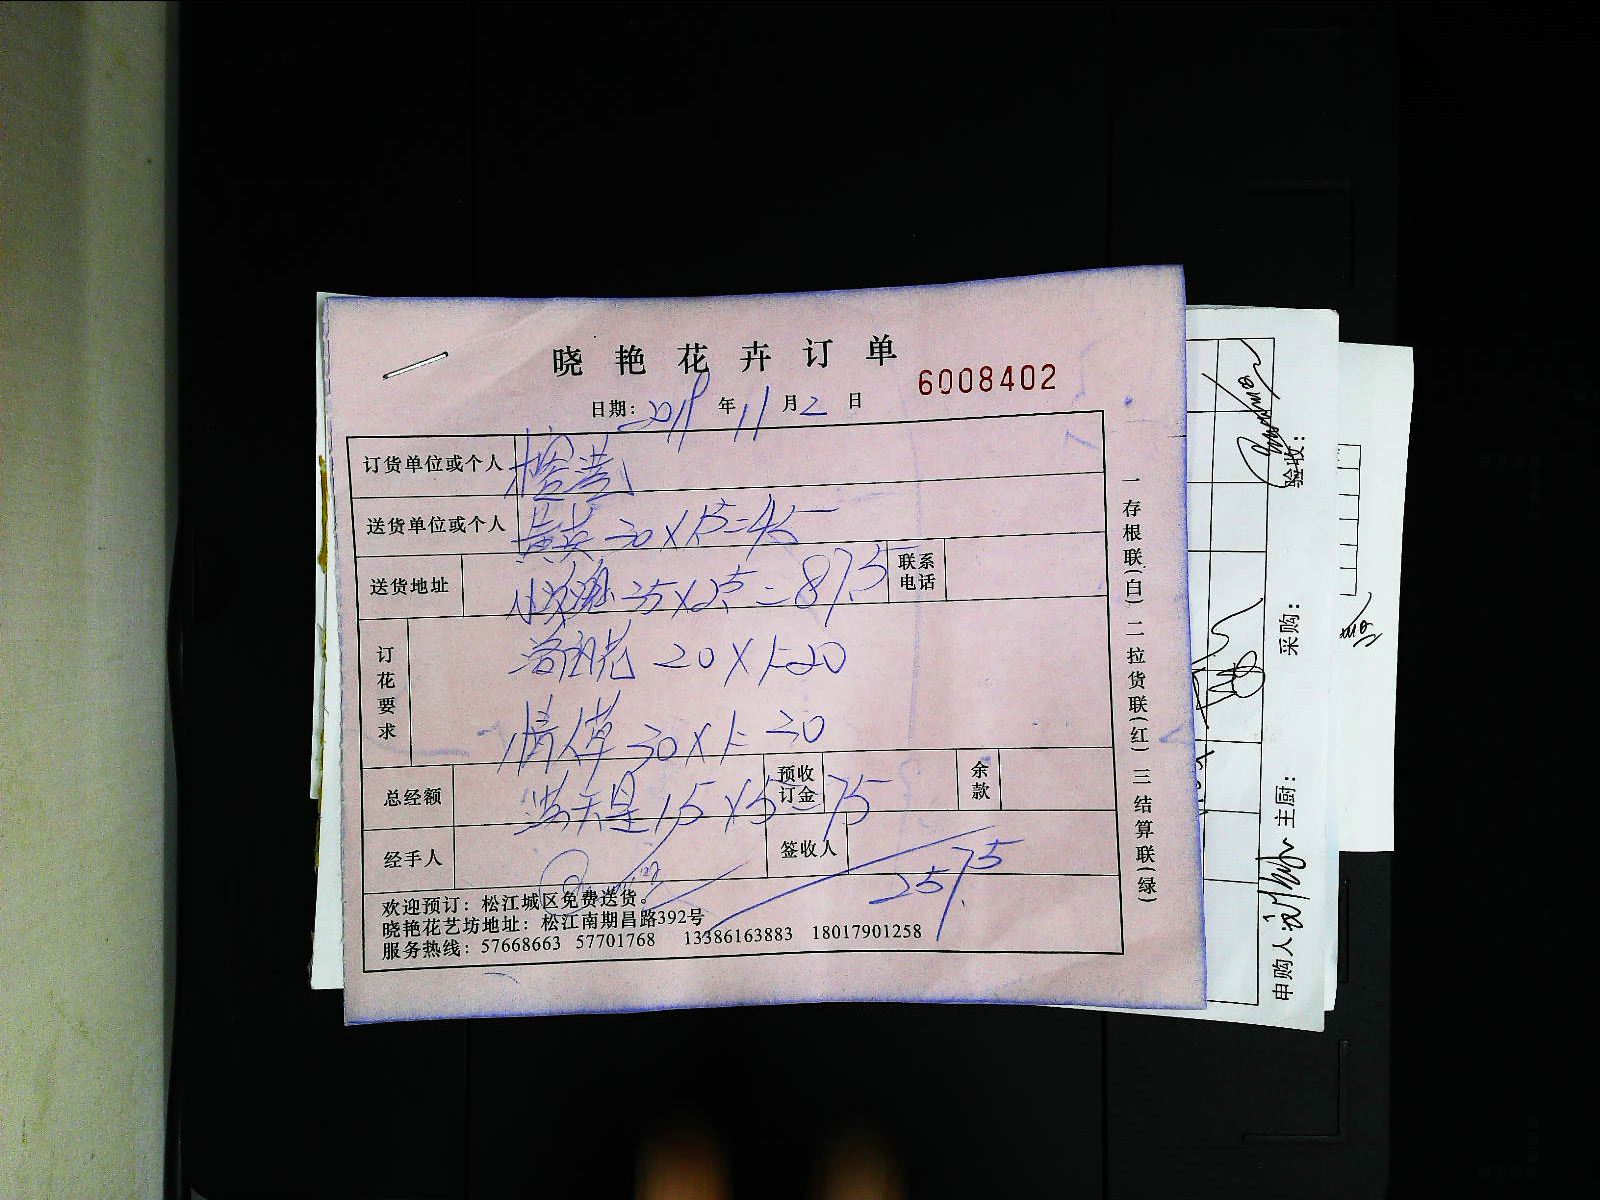 晓艳花卉订单
6008402
日期: 2019 年 11 月 2 日
订货单位或个人
送货单位或个人 黄英 30×1.5=45
送货地址 35×2.5=87.5 联系电话
订花要求 20×1=20
情人草 30×1=30
总经额 满天星 15×5=75 预收订金 余款
经手人 签收人 257.5
欢迎预订: 松江城区免费送货。
晓艳花艺坊地址: 松江南期昌路392号
服务热线: 57668663 57701768 13386163883 18017901258
一存根联(白) 二拉货联(红) 三结算联(绿)
验收:
采购:
主厨:
申购人